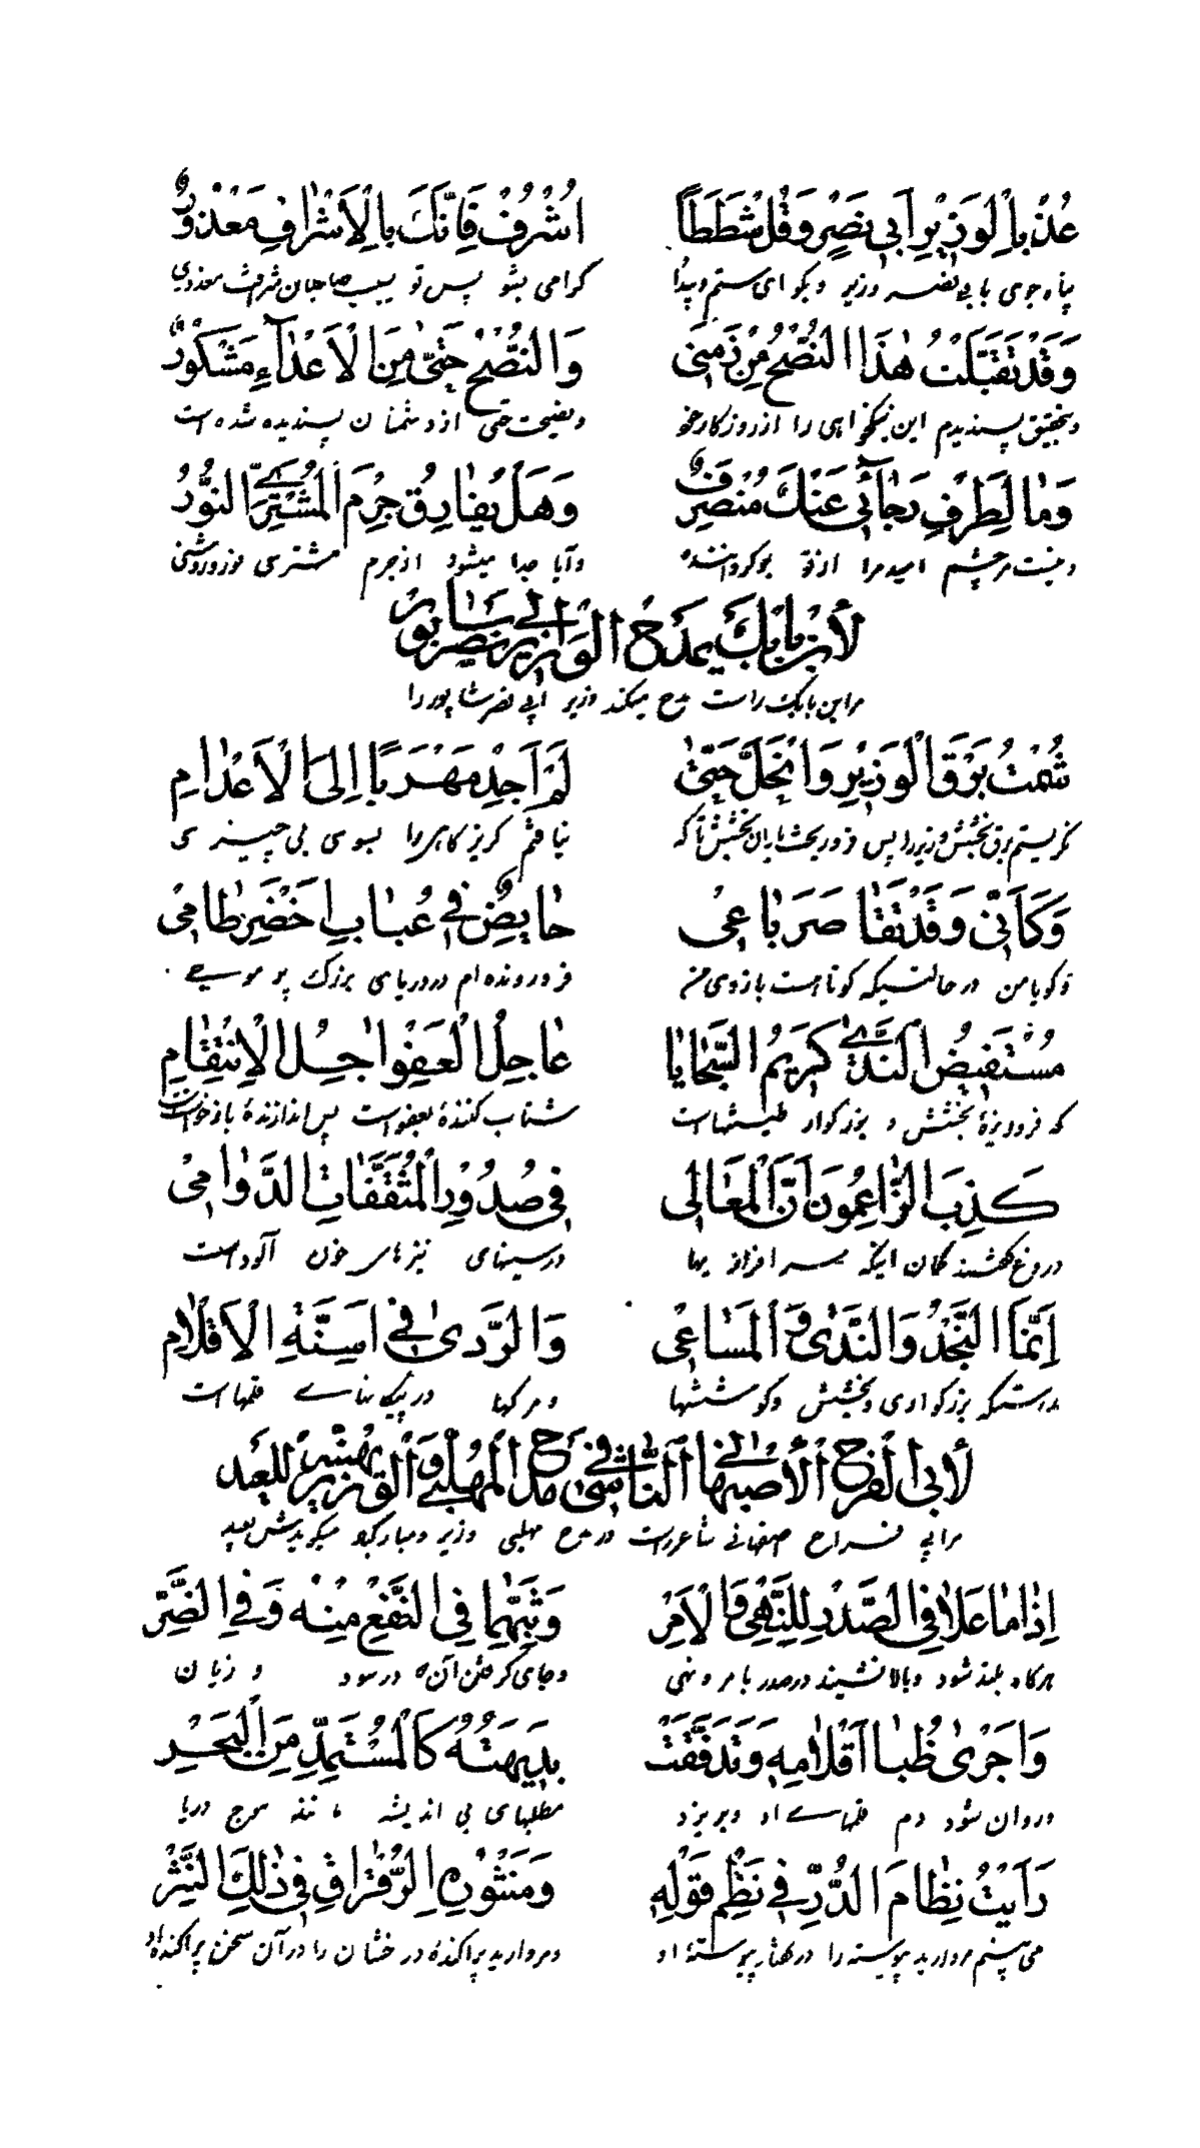 عُذْ بِالْوَزِيرِ أَبِي نَصْرٍ وَقُلْ شَطَطاً اُشْرُفْ فَإِنَّكَ بِالْأَشْرَافِ مَعْذُورٌ
پناه جوی بابی نصر وزیر و بگو ای ستم گرامی بشو پس تو بسبب صاحبان شرافت معذوری
وَقَدْ تَقَبَّلْتُ هٰذَا النُّصْحَ مِنْ زَمَنِي وَالنُّصْحُ حَتَّىٰ مِنَ الْأَعْدَاءِ مَشْكُورٌ
وبتحقیق پسندیدم این نیکخواهی را از روزگار خود ونصیحت حتی از دشمنان پسندیده شده است
وَمَا لِطَرْفِ رَجَائِي عَنْكَ مُنْصَرِفٌ وَهَلْ يُفَارِقُ جِرْمَ الْمُشْتَرِي النُّورُ
ونیست مر چشم امید مرا از تو وآیا جدا میشود از جرم مشتری نور و روشنی
لِأَبْنِ بَابَكَ يَمْدَحُ الْوَزِيرَ أَبِي نَصْرٍ سَابُورَ
مر ابن بابک راست مدح میکند وزیر ابی نصر شاپور را
شُمْتُ بَرْقَ الْوَزِيرِ وَانْحَلَّ حَتَّىٰ لَمْ أَجِدْ مَهْرَبًا إِلَى الْأَعْدَامِ
نگریستم برق بخشش وزیر را پس تا که نیافتم گریزگاهی را بسوی بی چیزی
وَكَأَنِّي وَقَدْ تَقَاصَرَ بَاعِي خَايِضٌ فِي عُبَابِ اخْضَرِ طَامِي
وگویا من در حالتیکه کوتاهست بازوی من فرورونده ام در دریای بزرگ پر موجی
مُسْتَفِيضُ النَّدَىٰ كَرِيمُ السَّجَايَا عَاجِلُ الْعَفْوِ اٰجِلُ الْاِنْتِقَامِ
که فروریزۀ بخشش و بزرگوار طبیعتهاست شتاب کنندۀ بعفو است پس اندازندۀ بازخواست
كَذِبَ الزَّاعِمُونَ أَنَّ الْمَعَالِي فِي صُدُورِ الْمُثَقَّفَاتِ الدَّوَامِي
دروغ گفتند گمان اینکه سرافرازیها در سینهای نیزهای خون آلود است
إِنَّمَا الْمَجْدُ وَالنَّدَىٰ وَالْمَسَاعِي وَالرَّدَىٰ فِي أَسِنَّةِ الْأَقْلَامِ
بدرستیکه بزرگواری وبخشش وکوششها ومرگها در پیکانهای قلمها است
لِأَبِي الْفَرَجِ الْأَصْبَهَانِي الشَّاعِرِ فِي مَدْحِ الْمُهَلَّبِي وَالْوَزِيرِ يُهَنِّئُهُ لِلْعِيدِ
مر ابی فراج اصفهانی شاعر راست در مدح مهلبی وزیر ومبارکباد میگویدش بعید
إِذَا مَا عَلَا فِي الصَّدْرِ لِلنَّهْيِ وَالْأَمْرِ وَبَثَّهُمَا فِي النَّفْعِ مِنْهُ وَفِي الضُّرِّ
هرگاه بلند شود وبالا نشیند در صدر بامر و نهی وجای گرفتن آن در سود و زیان
وَاَجْرىٰ ظُبَا أَقْلَامِهِ وَتَدَفَّقَتْ بَدِيهَتُهُ كَالْمُسْتَمِدِّ مِنَ الْبَحْرِ
وروان شود دم قلمهای او وبریزد مطلبهای بی اندیشه مانند موج دریا
رَأَيْتُ نِظَامَ الدُّرِّ فِي نَظْمِ قَوْلِهِ وَمَنْثُورِهِ الرَّقْرَاقِ فِي ذٰلِكَ النَّثْرِ
می بینم مروارید پیوسته را در گفتار پیوستۀ او ومروارید پراکندۀ درخشان را در آن سخن پراکندۀ او